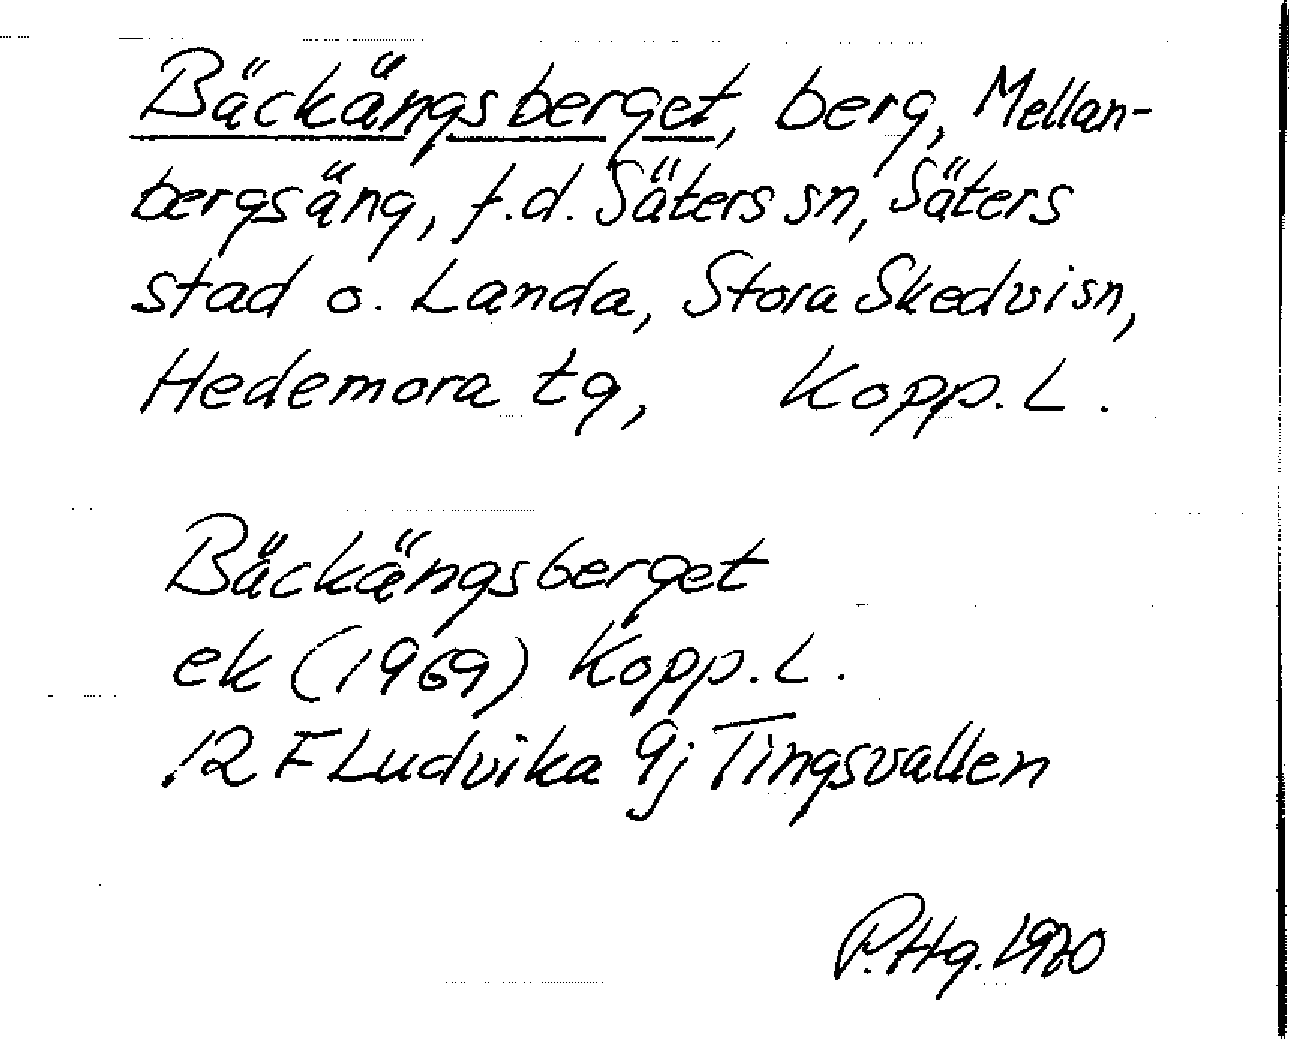 Bäckängsberget, berg, Mellan-
bergsäng, f.d. Säters sn, Säters
stad o. Landa, Stora Skedvi sn,
Hedemora tg, Kopp. L.
Bäckängsberget
ek (1969) Kopp. L.
12 F Ludvika 9j Tingsvallen
P. Hg. 1970